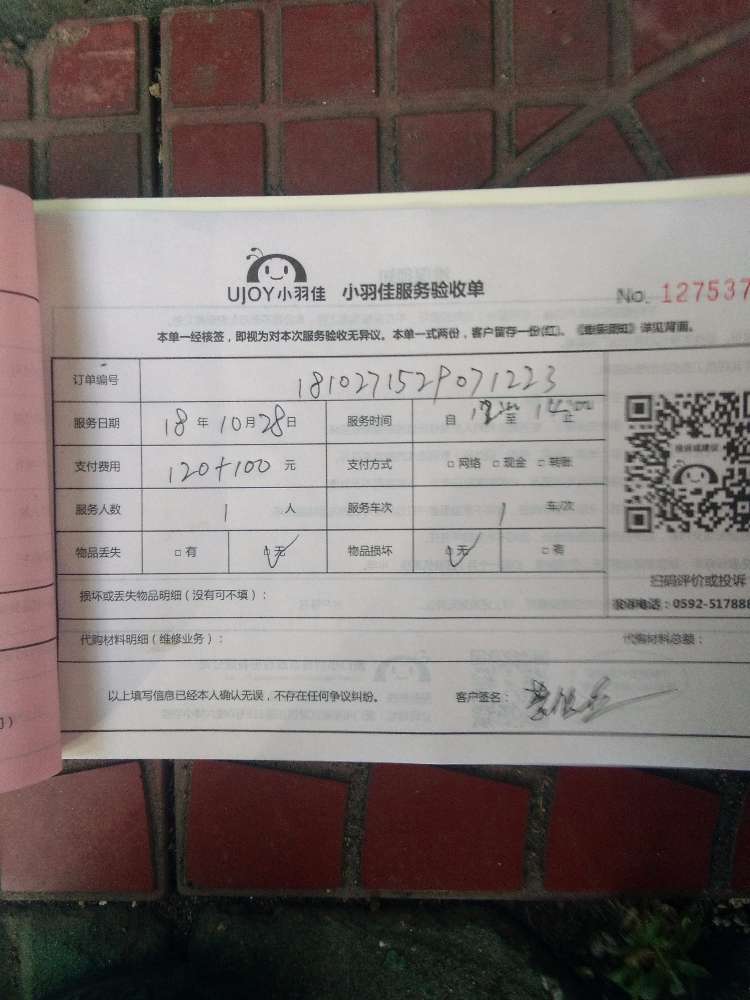 UJOY小羽佳 小羽佳服务验收单
No. 127537
本单一经核签，即视为对本次服务验收无异议。本单一式两份，客户留存一份(红)、《维保须知》详见背面。
订单编号 1810271529071223
服务日期 18年10月28日 服务时间 自 至 14:00 止
支付费用 120+100 元 支付方式 □网络 □现金 □转账
服务人数 1 人 服务车次 1 车/次
物品丢失 □有 □无 物品损坏 □无 □有
投诉或建议
扫码评价或投诉
电话：0592-517888
损坏或丢失物品明细（没有可不填）：
代购材料明细（维修业务）： 代购材料总额：
以上填写信息已经本人确认无误，不存在任何争议纠纷。 客户签名：